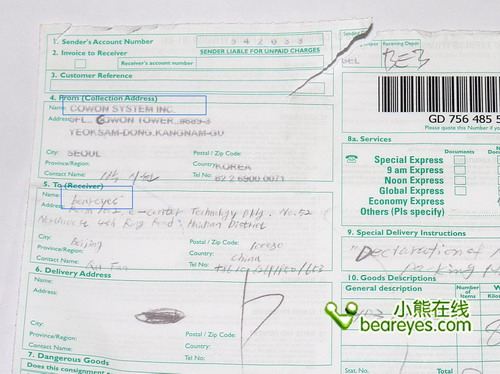 1. Sender's Account Number 942033
2. Invoice to Receiver SENDER LIABLE FOR UNPAID CHARGES
Receiver's account number
3. Customer Reference
4. From (Collection Address)
Name: COWON SYSTEM INC.
Address: 6FL. COWON TOWER. 
YEOKSAM-DONG.KANGNAM-GU
City: SEOUL Postal / Zip Code:
Province/Region: Country: KOREA
Contact Name: Tel No: 82 2 6900 0071
5. To (Receiver)
Name: beareyes
Address: e-center Technology Bldg. No.52
Northwest 4th Ring Road, Haidian District
City: Beijing Postal / Zip Code:
Province/Region: Country: China
Contact Name: Tel No:
6. Delivery Address
Name:
Address:
City: Postal / Zip Code:
Province/Region: Country:
Contact Name: Tel No:
7. Dangerous Goods
Does this consignment
Receiving Depot
BE3
GD 756 485 5
Please quote this Number if you
8a. Services
Documents
Special Express
9 am Express
Noon Express
Global Express
Economy Express
Others (Pls specify)
9. Special Delivery Instructions
Declaration of
10. Goods Description
General description Number of Items
小熊在线
beareyes.com
Stat. No: